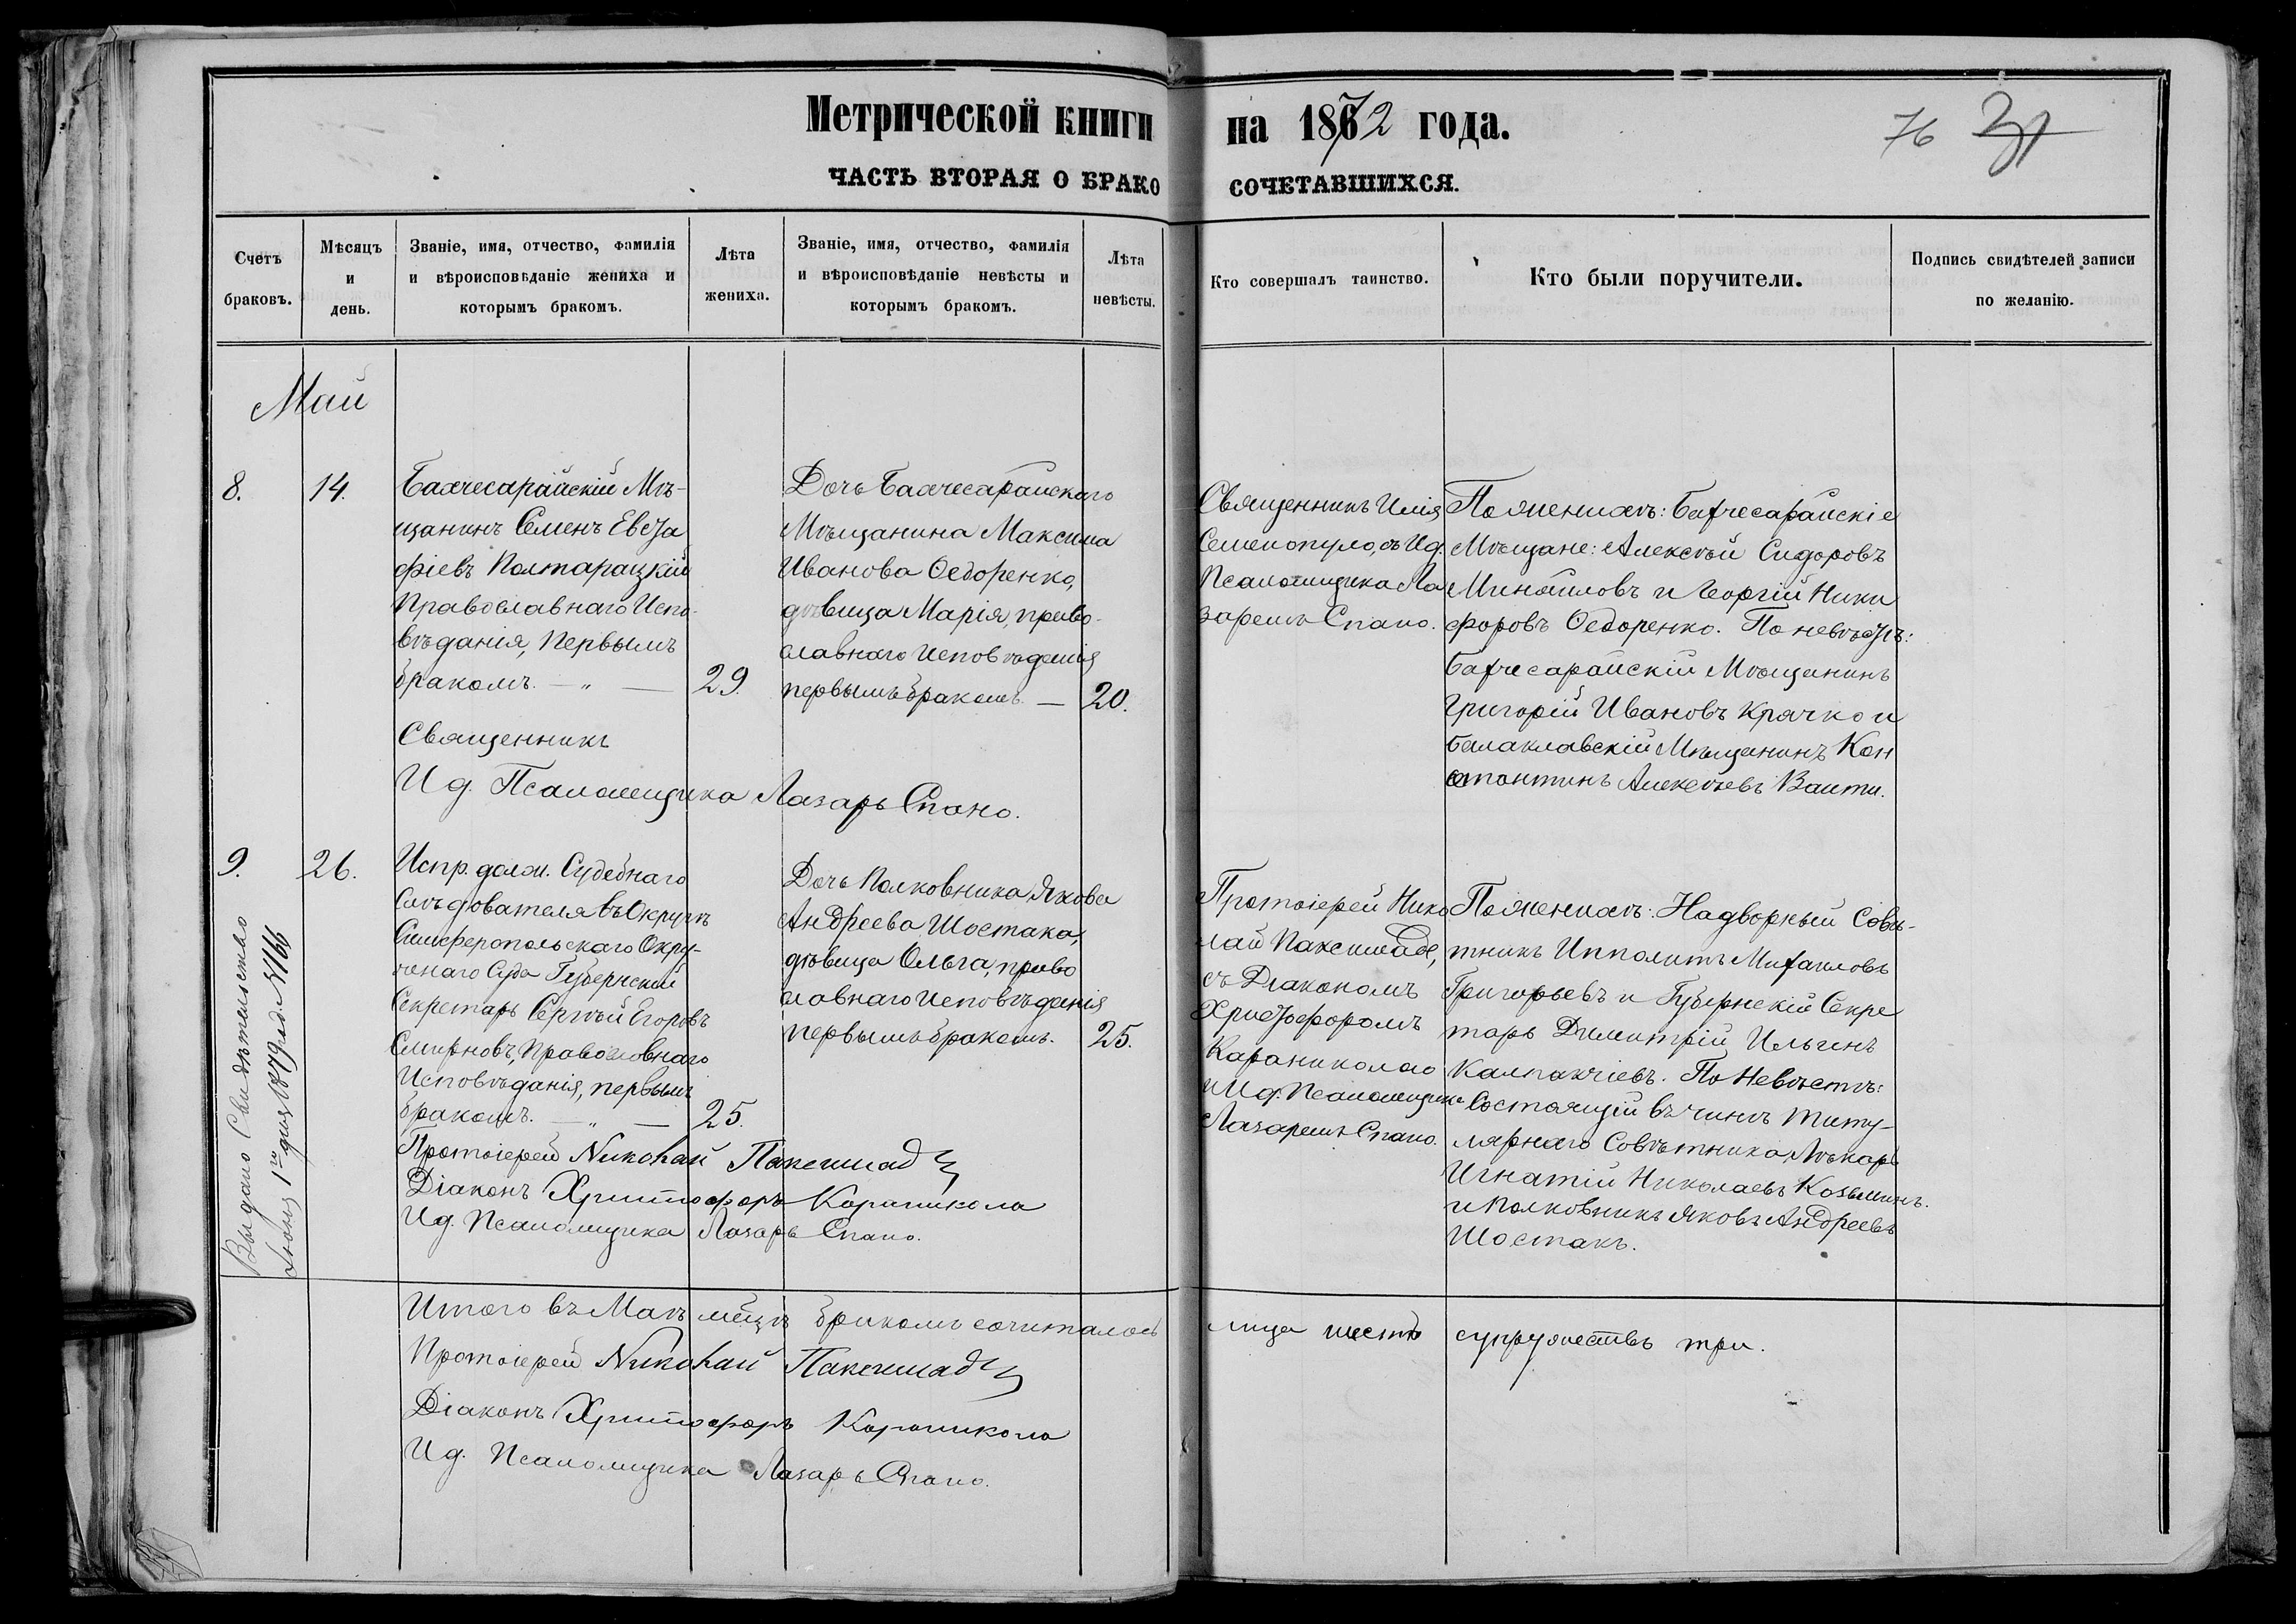 Метрической книги на 1872 года.
76 31
ЧАСТЬ ВТОРАЯ О БРАКОСОЧЕТАВШИХСЯ.
Счетъ
браковъ.
Мѣсяцъ
и
день.
Званіе, имя, отчество, фамилія
и вѣроисповѣданіе жениха и
которымъ бракомъ.
Лѣта
жениха.
Званіе, имя, отчество, фамилія
и вѣроисповѣданіе невѣсты и
которымъ бракомъ.
Лѣта
невѣсты.
Кто совершалъ таинство.
Кто были поручители.
Подпись свидѣтелей записи
по желанію.
Май
8.
14.
Бахчесарайскій Мѣ-
щанинъ Семенъ Евста
фіевъ Полтарацкій
Православнаго Испо-
вѣданія, первымъ
бракомъ. — „ —
29.
Дочь Бахчесарайскаго
Мѣщанина Максима
Иванова Ѳедоренко,
дѣвица Марія, право-
славнаго исповѣданія
первымъ бракомъ. —
20.
Священникъ Илія
Семенопуло, съ И.д.
Псаломщика Ла
заремъ Спано.
По женихѣ: Бахчесарайскіе
Мѣщане: Алексѣй Сидоровъ
Михайловъ и Георгій Ники
форовъ Ѳедоренко. По невѣстѣ:
Бахчесарайскій Мѣщанинъ
Григорій Ивановъ Крячко и
Балаклавскій Мѣщанинъ Кон
стантинъ Алексѣевъ Ваити.
Священникъ
И.д. Псаломщика Лазарь Спано.
9.
26.
Испр. долж. Судебнаго
Слѣдователя въ Округѣ
Симферопольскаго Окру-
жнаго Суда Губернскій
Секретарь Сергѣй Егоровъ
Смирновъ, Православнаго
Исповѣданія, первымъ
бракомъ. — „ —
25.
Дочь Полковника Якова
Андреева Шостака,
дѣвица Ольга, право
славнаго исповѣданія
первымъ бракомъ.
25.
Протоіерей Нико
лай Паксимаде,
съ Діакономъ
Христофоромъ
Караникола
и И.д. Псаломщика
Лазаремъ Спано.
По женихѣ: Надворный Совѣ-
тникъ Ипполитъ Михаиловъ
Григорьевъ и Губернскій Секре
тарь Димитрій Ильинъ
Калпакчіевъ. По Невѣстѣ:
Состоящій въ чинѣ Титу-
лярнаго Совѣтника Лѣкарь
Игнатій Николаевъ Козьминъ.
и Полковникъ Яковъ Андреевъ
Шостакъ.
Протоіерей Николай Паксимад
Діаконъ Христофоръ Караникола
И.д. Псаломщика Лазарь Спано.
Выдано Свидѣтельство
Іюня 1го дня 1879 год. №166
Итого въ Маѣ мѣцѣ бракомъ сочиталось лица шесть супружествъ три.
Протоіерей Николай Паксимад
Діаконъ Христофоръ Караникола
И.д. Псаломщика Лазарь Спано.